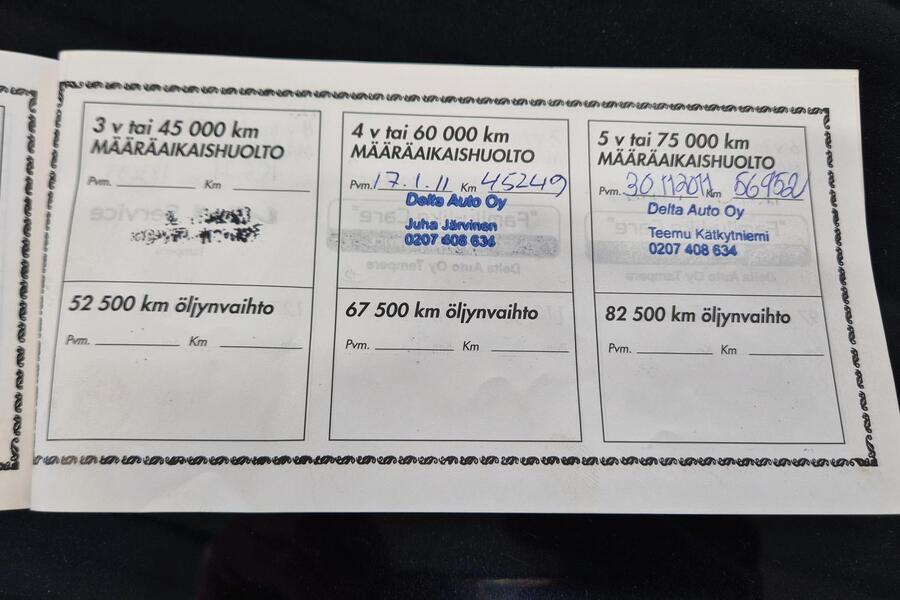 3 v tai 45 000 km
MÄÄRÄAIKAISHUOLTO
Pvm. Km
52 500 km öljynvaihto
Pvm. Km
4 v tai 60 000 km
MÄÄRÄAIKAISHUOLTO
Pvm. 17.1.11 Km 45249
Delta Auto Oy
Juha Järvinen
0207 408 634
67 500 km öljynvaihto
Pvm. Km
5 v tai 75 000 km
MÄÄRÄAIKAISHUOLTO
Pvm. 30.11.2011 Km 56952
Delta Auto Oy
Teemu Kätkytniemi
0207 408 634
82 500 km öljynvaihto
Pvm. Km